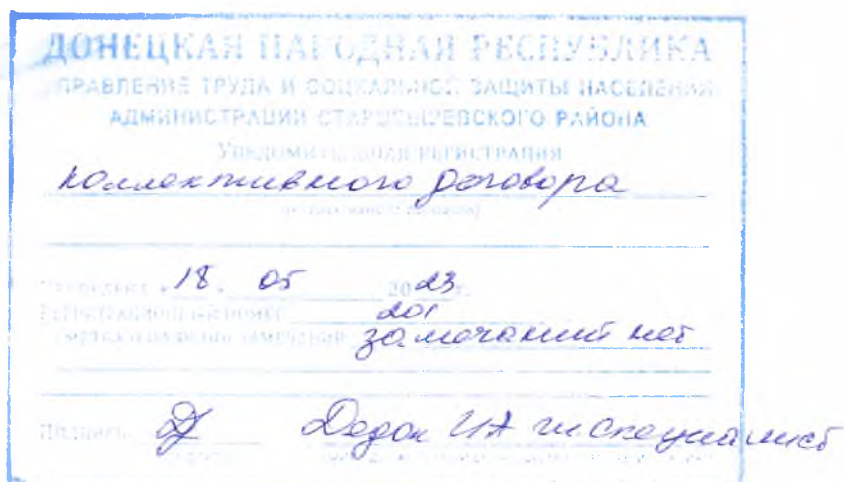 ДОНЕЦКАЯ НАРОДНАЯ РЕСПУБЛИКА
УПРАВЛЕНИЕ ТРУДА И СОЦИАЛЬНОЙ ЗАЩИТЫ НАСЕЛЕНИЯ
АДМИНИСТРАЦИИ СТАРОБЕШЕВСКОГО РАЙОНА
УВЕДОМИТЕЛЬНАЯ РЕГИСТРАЦИЯ
коллективного договора
18. 05 2023 г.
РЕГИСТРАЦИОННЫЙ НОМЕР 201
ОТМЕТКА О НАЛИЧИИ ЗАМЕЧАНИЙ замечаний нет
Подпись Дедок гл специалист